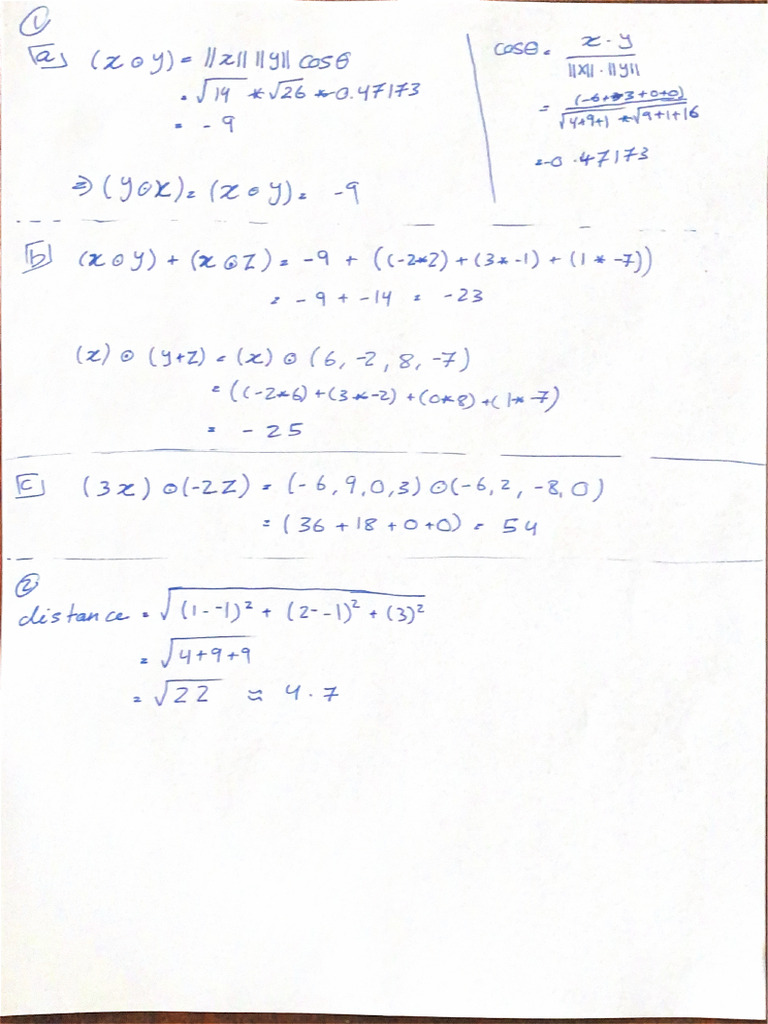 ①
a (x ⊙ y) = ||x|| ||y|| cos θ
= √14 * √26 * -0.47173
= -9
⇒ (y⊙x) = (x ⊙ y) = -9
cosθ = x · y / ||x|| · ||y||
= (-6 + -3 + 0+0) / √4+9+1 * √9+1+16
= -0.47173
b (x ⊙ y) + (x ⊙ z) = -9 + ((-2*2) + (3* -1) + (1 * -7))
= -9 + -14 = -23
(x) ⊙ (y+z) = (x) ⊙ (6, -2, 8, -7)
= ((-2*6) + (3*-2) + (0*8) + (1*-7)
= -25
c (3x) ⊙ (-2z) = (-6, 9, 0, 3) ⊙ (-6, 2, -8, 0)
= (36 + 18 + 0 + 0) = 54
②
distance = √(1--1)² + (2--1)² + (3)²
= √4+9+9
= √22 ≈ 4.7